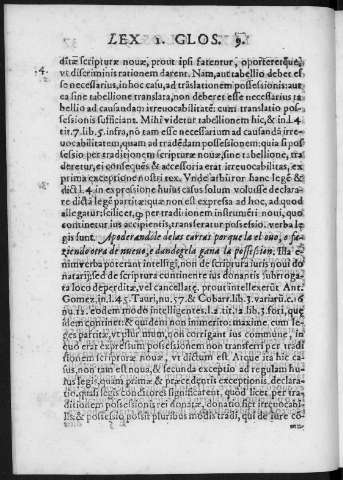 LEX 1. GLOS. 9.
dãtæ scripturæ nouæ, prout ipsi fatentur, oporteretque,
4. vt discriminis rationem darent. Nam, aut tabellio debet es
se necessarius, in hoc casu, ad trãslationem possessionis: aut
ea sine tabellione translata, non deberet esse necessarius ta
bellio ad causandam irreuocabilitatẽ: cum translatio pos-
sessionis sufficiant. Mihi videtur tabellionem hîc, & in l. 4
tit. 7. lib. 5. infra, nõ tam esse necessarium ad causandã irre-
uocabilitatem, quam ad tradẽdam possessionem: quia si pos
sessio per traditionem scripturæ nouæ, sine tabellione, tra
deretur, ei consequẽs & accessoria erat irreuocabilitas, ex
prima exceptione nostri tex. Vnde arbitror hanc legẽ &
dict. l. 4 in expressione huius casus solum voluisse declara-
re dicta legẽ partitæ: quæ non est expressa ad hoc, ad quod
allegatur: scilicet, q; per traditionem instrumẽti noui, quo
continetur ius accipientis, transferatur possessio. verba le
gis sunt. Apoderandole de las cartas porque la el ouo, o fa-
ziendo otra de nueuo, e dandogela gana la possession. Illa e-
nim verba poterant intelligi, non de scriptura iuris noui do
natarij, sed de scriptura continente ius donantis subroga-
ta loco deperditæ, vel cancellatę. prout intellexerũt Ant.
Gomez. in l. 45. Tauri, nu. 57. & Cobarr. lib. 3. variarũ. c. 16
nu. 12. eodem modo intelligentes. l. 2 tit. 12 lib. 3. fori, quę
idem continet: & eundem non immerito: maxime cum le-
ges partitæ, vt plurimum, non corrigant ius commune, in
quo erat expressum possessionem non transferri per tradi
tionem scripturæ nouæ, vt dictum est. Atque ita hic ca-
sus, non tam est noua, & secunda exceptio ad regulam hu-
ius legis, quam primæ & præcedẽtis exceptionis, declara-
tio, quasi legis conditores significarent, quod licet per tra-
ditionem possessionis rei donatæ, donatio fiet irreuocabi-
lis: & possessio possit pluribus modis tradi, qui de iure cõ-
mu-